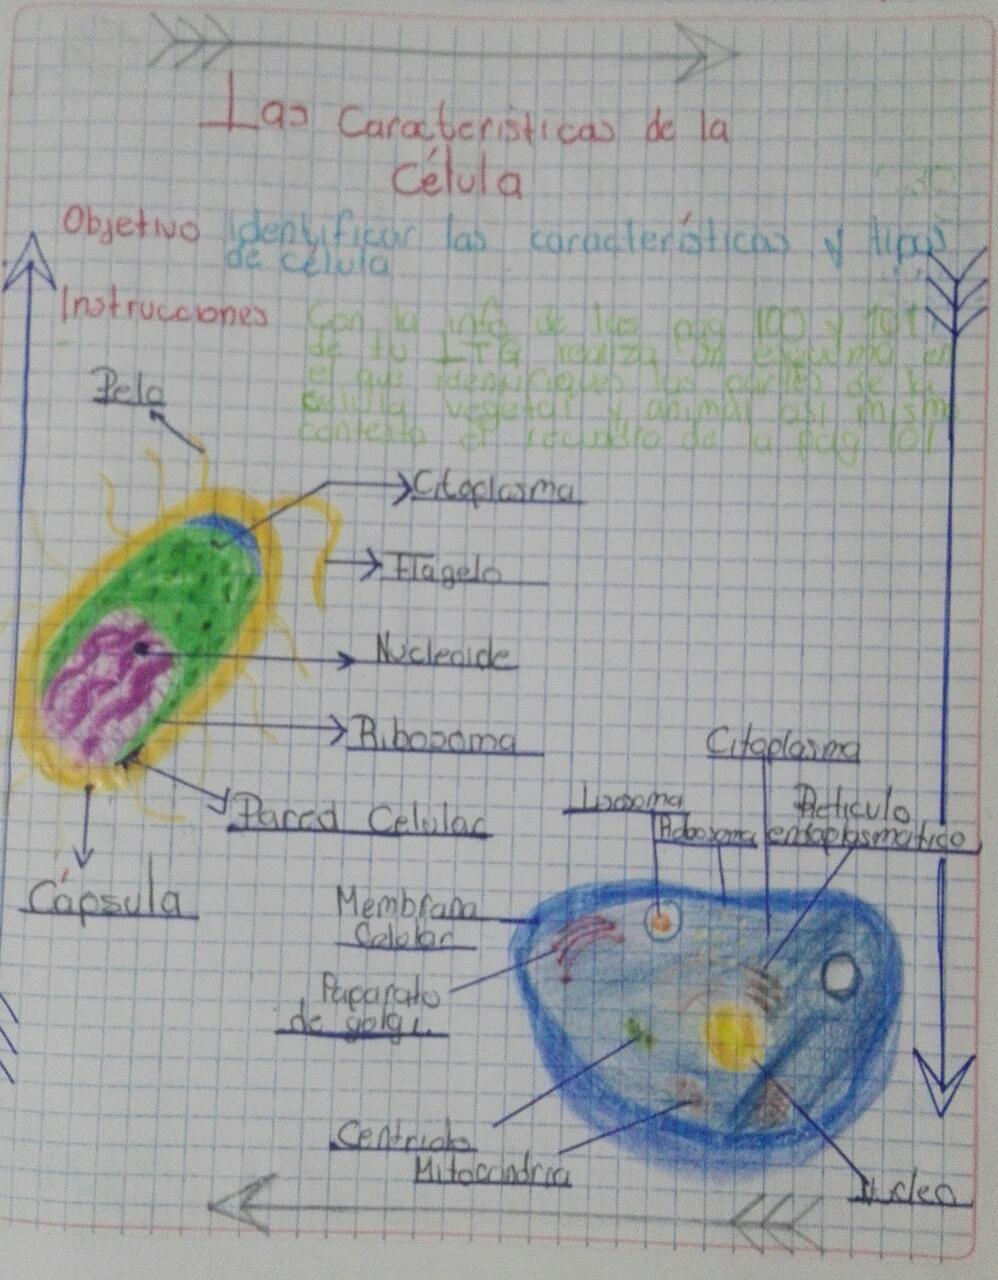 Las Caracteristicas de la
Célula
Objetivo Identificar las características y tipos
de célula
Instrucciones Con la info de las pag 100 y 101
de tu LTG realiza un esquema en
el que identifiques las partes de la
célula vegetal y animal así mismo
contesta el recuadro de la pag 101
Pelo
Citoplasma
Flagelo
Nucleoide
Ribosoma
Pared Celular
Cápsula
Citoplasma
Lisosoma
Reticulo
Ribosoma
entoplasmatico
Membrana
Celular
Paparato
de golgi.
Centriolo
Mitocondria
Nucleo